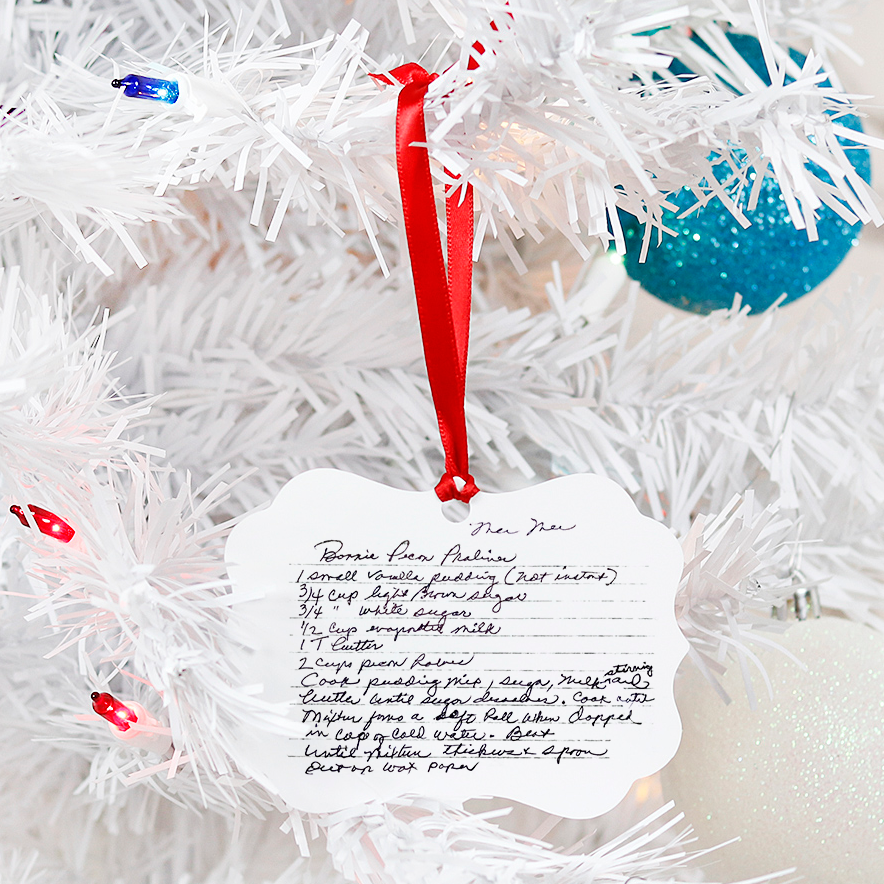 Maw Maw
Bonnie Pecan Pralines
1 small Vanilla pudding (not instant)
3/4 cup light Brown sugar
3/4 " white sugar
1/2 cup evaporated milk
1 T butter
2 cups pecan halves
Cook pudding mix, sugar, milk and
stirring
butter until sugar dissolves. Cook until
Mixture forms a soft ball when dropped
in cup of cold water. Beat
Until mixture thickens & spoon
Out on wax paper